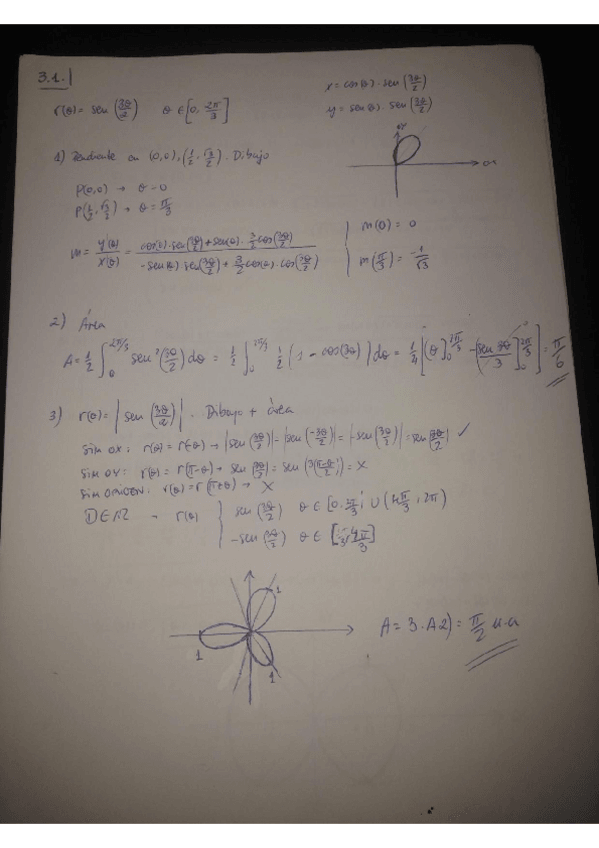 3.1.
r(θ) = sen (3θ/2) θ ∈ [0, 2π/3]
x = cos(θ) · sen (3θ/2)
y = sen(θ) · sen (3θ/2)
1) Pendiente en (0,0), (1/2, √3/2). Dibujo
OX
P(0,0) → θ = 0
P(1/2, √3/2) → θ = π/3
m = y'(θ)/x'(θ) = (cos(θ) · sen(3θ/2) + sen(θ) · 3/2 cos(3θ/2)) / (-sen(θ) · sen(3θ/2) + 3/2 cos(θ) · cos(3θ/2))
m(0) = 0
m(π/3) = -1/√3
2) Área
A = 1/2 ∫₀^{2π/3} sen² (3θ/2) dθ = 1/2 ∫₀^{2π/3} 1/2 (1 - cos(3θ)) dθ = 1/4 [(θ]₀^{2π/3} - (sen 3θ/3]₀^{2π/3}] = π/6
3) r(θ) = |sen (3θ/2)|. Dibujo + área
Sim OX: r(θ) = r(-θ) → |sen(3θ/2)| = |sen(-3θ/2)| = |-sen(3θ/2)| = sen(3θ/2) ✓
Sim OY: r(θ) = r(π-θ) → sen(3θ/2) = sen(3(π-θ)/2) = X
Sim ORIGEN: r(θ) = r(π+θ) → X
r(θ) { sen (3θ/2) θ ∈ [0, 2π/3] ∪ (4π/3, 2π)
-sen (3θ/2) θ ∈ [2π/3, 4π/3]
1
1
1
A = 3 · A2) = π/2 u.a